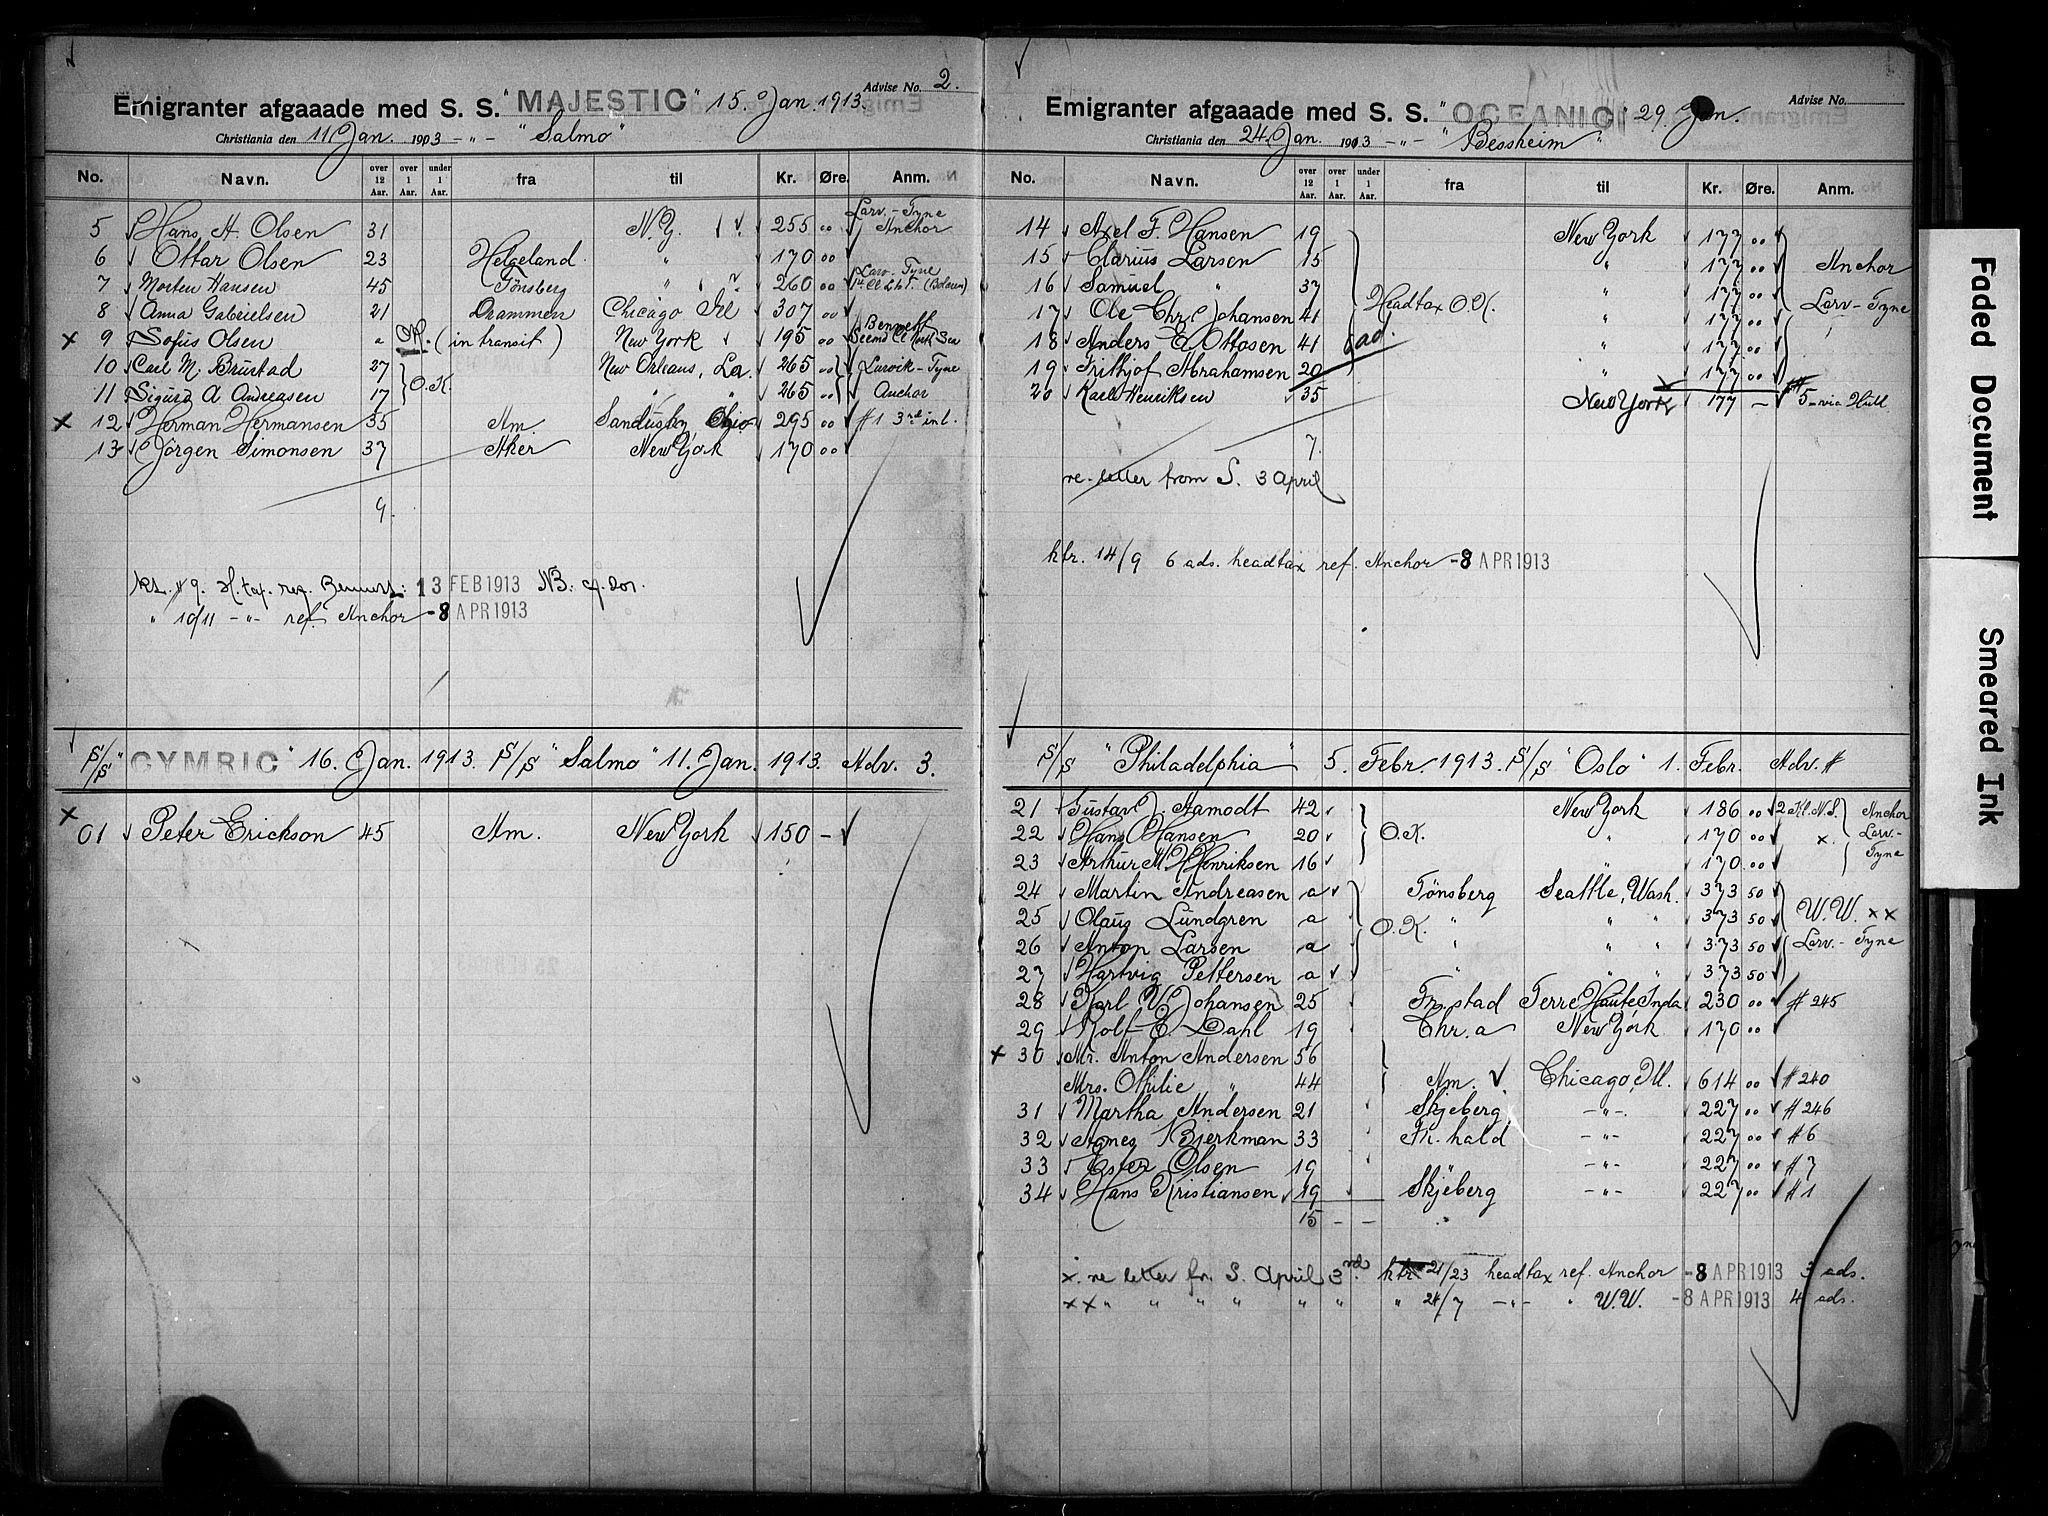 Advise No. 2.
Emigranter afgaaade med S. S. "MAJESTIC" 15. Jan. 1913.
Christiania den 11 Jan. 1903 -"- "Salmo"
No. Navn. over 12 Aar. over 1 Aar. under 1 Aar. fra til Kr. Øre. Anm.
5 Hans A. Olsen 31 N.Y. 255 00 Larv.-Tyne Anchor
6 Ottar Olsen 23 Helgeland " 170 00
7 Morten Hansen 45 Tönsberg " 260 00 Larv-Tyne
8 Anna Gabrielsen 21 Drammen Chicago Ill 307 00
x 9 Sofus Olsen a (in transit) New York 195 00 Bennett
10 Carl M. Brustad 27 New Orleans, La. 265 00 Larvik-Tyne
11 Sigurd A. Andreasen 17 O.K. " " 265 00 Anchor
x 12 Herman Hermansen 35 Am. Sandusky Ohio 295 00 #1 3rd int.
13 Jörgen Simonsen 37 Aker New York 170 00
9.
9. H. tax. 13 FEB 1913 NB.
" 10/11 -"- ref. Anchor -8 APR 1913
S/S "CYMRIC" 16. Jan. 1913. S/S "Salmo" 11. Jan. 1913. Adv. 3.
x 01 Peter Erickson 45 Am. New York 150 -
Advise No.
Emigranter afgaaade med S. S. "OCEANIC" 29. Jan.
Christiania den 24. Jan. 1913 -"- "Bessheim"
No. Navn. over 12 Aar. over 1 Aar. under 1 Aar. fra til Kr. Øre. Anm.
14 Axel F. Hansen 19 New York 177 00
15 Clarius Larsen 15 " 177 00 Anchor
16 Samuel " 37 " 177 00
17 Ole Chr. Johansen 41 Headtax O.K. " 177 00 Larv-Tyne
18 Anders E. Ottosen 41 6 ad. " 177 00
19 Frithjof Abrahamsen 20 " 177 00
20 Karl Henriksen 35 New York 177 - # 5 - via Hull
7.
re-letter from S. 3 April
ktr. 14/9 6 ads. headtax ref. Anchor -8 APR 1913
S/S "Philadelphia" 5. Febr. 1913. S/S "Oslo" 1. Febr. Adv. #
21 Gustav J. Aamodt 42 New York 186 00 Anchor
22 Hans Hansen 20 O.K. " 170 00 x Larv.-
23 Arthur M. Henriksen 16 " 170 00 Tyne
24 Martin Andreasen a Tønsberg Seattle, Wash. 373 50
25 Olaus Lundgren a O.K. " " " 373 50 W.W. xx
26 Anton Larsen a " " " 373 50 Larv.-Tyne
27 Hartvig Pettersen a " " " 373 50
28 Karl W. Johansen 25 Fr.stad Terre Haute Inda 230 00 # 245
29 Rolf E. Dahl 19 Chr.a New York 170 00
x 30 Mr. Anton Andersen 56
Mrs. Othilie " 44 Am. Chicago, Ill. 614 00 # 240
31 Martha Andersen 21 Skjeberg -"- 227 00 # 246
32 Agnes Bjerkman 33 Fr.hald -"- 227 00 # 6
33 Ester Olsen 19 -"- 227 00 # 7
34 Hans Kristiansen 19 Skjeberg -"- 227 00 # 1
15 - -
x. re letter fr. S. April 3rd. ktr 21/23 headtax ref. Anchor -8 APR 1913 3 ads.
xx " " " " " " " 24/7 -"- " W.W. -8 APR 1913 4 ads.
Faded Document
Smeared Ink